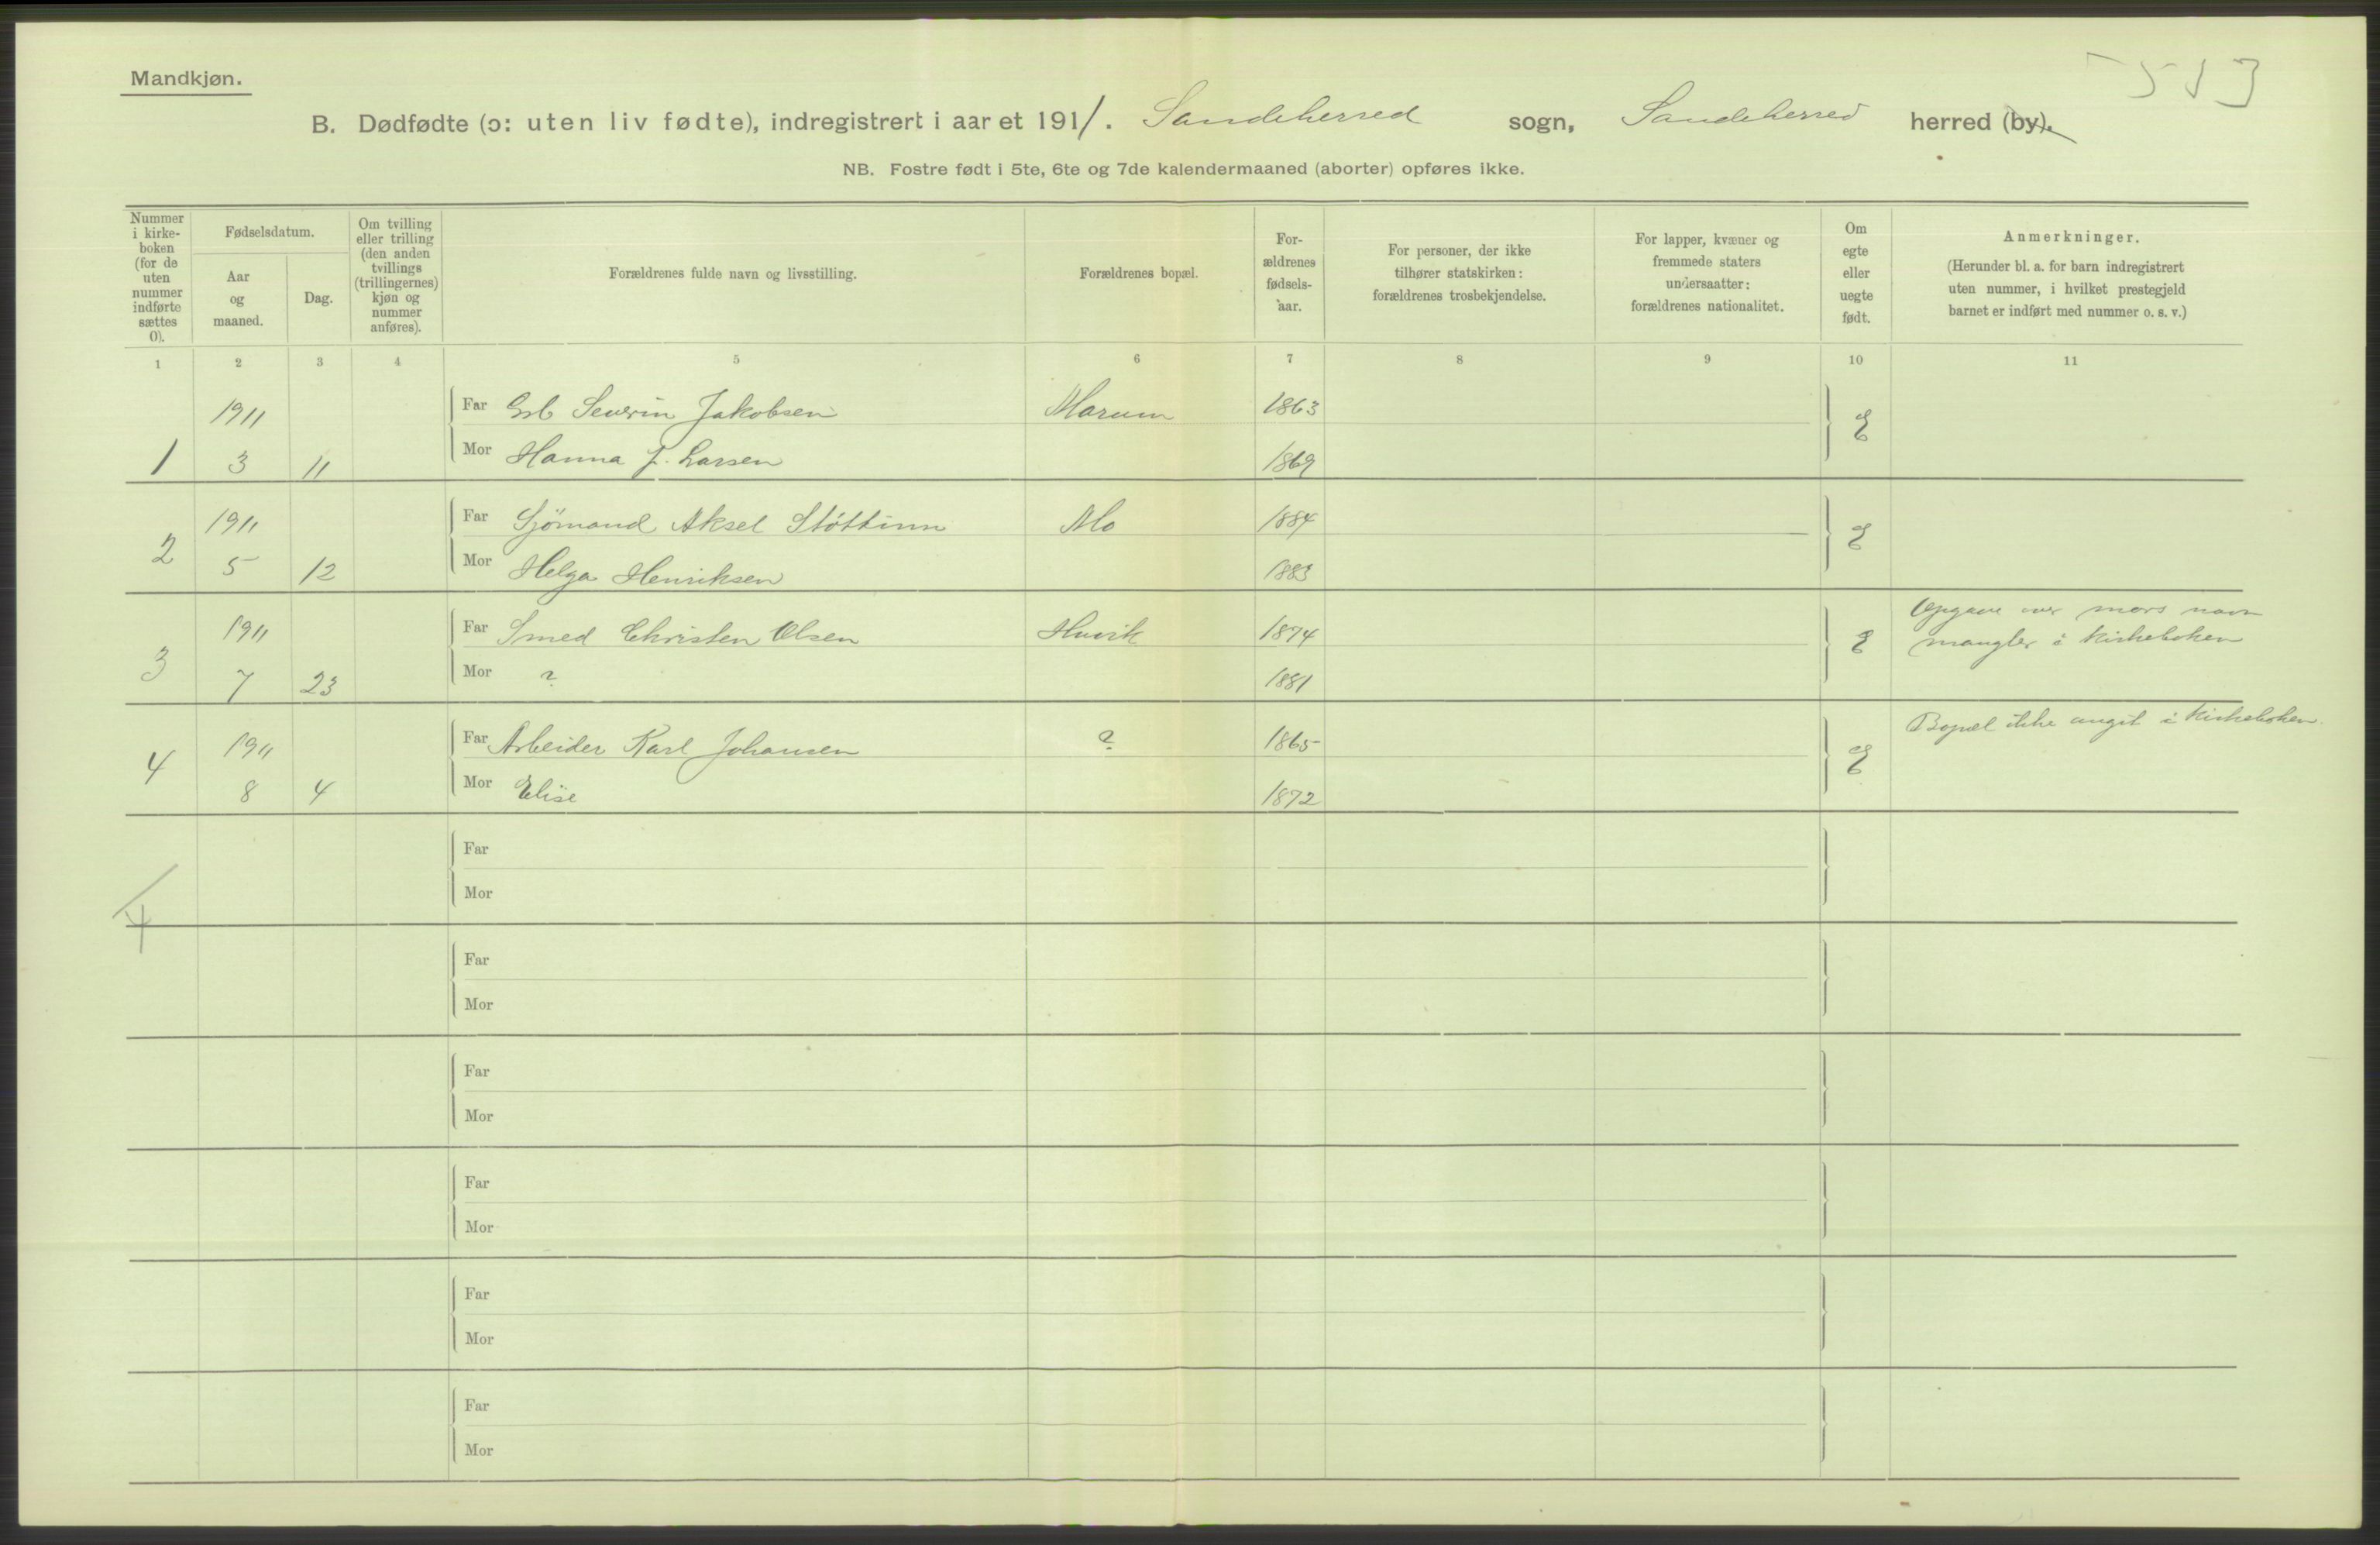 Mandkjøn.
513
B. Dødfødte (ɔ: uten liv fødte), indregistrert i aaret 1911. Sandeherred sogn, Sandeherred herred (by).
NB. Fostre født i 5te, 6te og 7de kalendermaaned (aborter) opføres ikke.
Nummer
i kirke-
boken
(for de
uten
nummer
indførte
sættes
0).
Fødselsdatum.
Aar
og
maaned.
Dag.
Om tvilling
eller trilling
(den anden
tvillings
(trillingernes)
kjøn og
nummer
anføres).
Forældrenes fulde navn og livsstilling.
Forældrenes bopæl.
For-
ældrenes
fødsels-
aar.
For personer, der ikke
tilhører statskirken:
forældrenes trosbekjendelse.
For lapper, kvæner og
fremmede staters
undersaatter:
forældrenes nationalitet.
Om
egte
eller
uegte
født.
Anmerkninger.
(Herunder bl. a. for barn indregistrert
uten nummer, i hvilket prestegjeld
barnet er indført med nummer o. s. v.)
1 2 3 4 5 6 7 8 9 10 11
1911 Far Severin Jakobsen Marum 1863 E
1 3 11 Mor Hanna J. Larsen 1869
1911 Far Sjömand Aksel Støttinn Mo 1884 E
2 5 12 Mor Helga Henriksen 1883
1911 Far Smed Christen Olsen Huvik 1874 E Opgave over mors navn
mangler i kirkeboken
3 7 23 Mor ? 1881
1911 Far Arbeider Karl Johansen ? 1865 E Bopæl ikke angit i kirkeboken
4 8 4 Mor Elise 1872
Far
Mor
4
Far
Mor
Far
Mor
Far
Mor
Far
Mor
Far
Mor